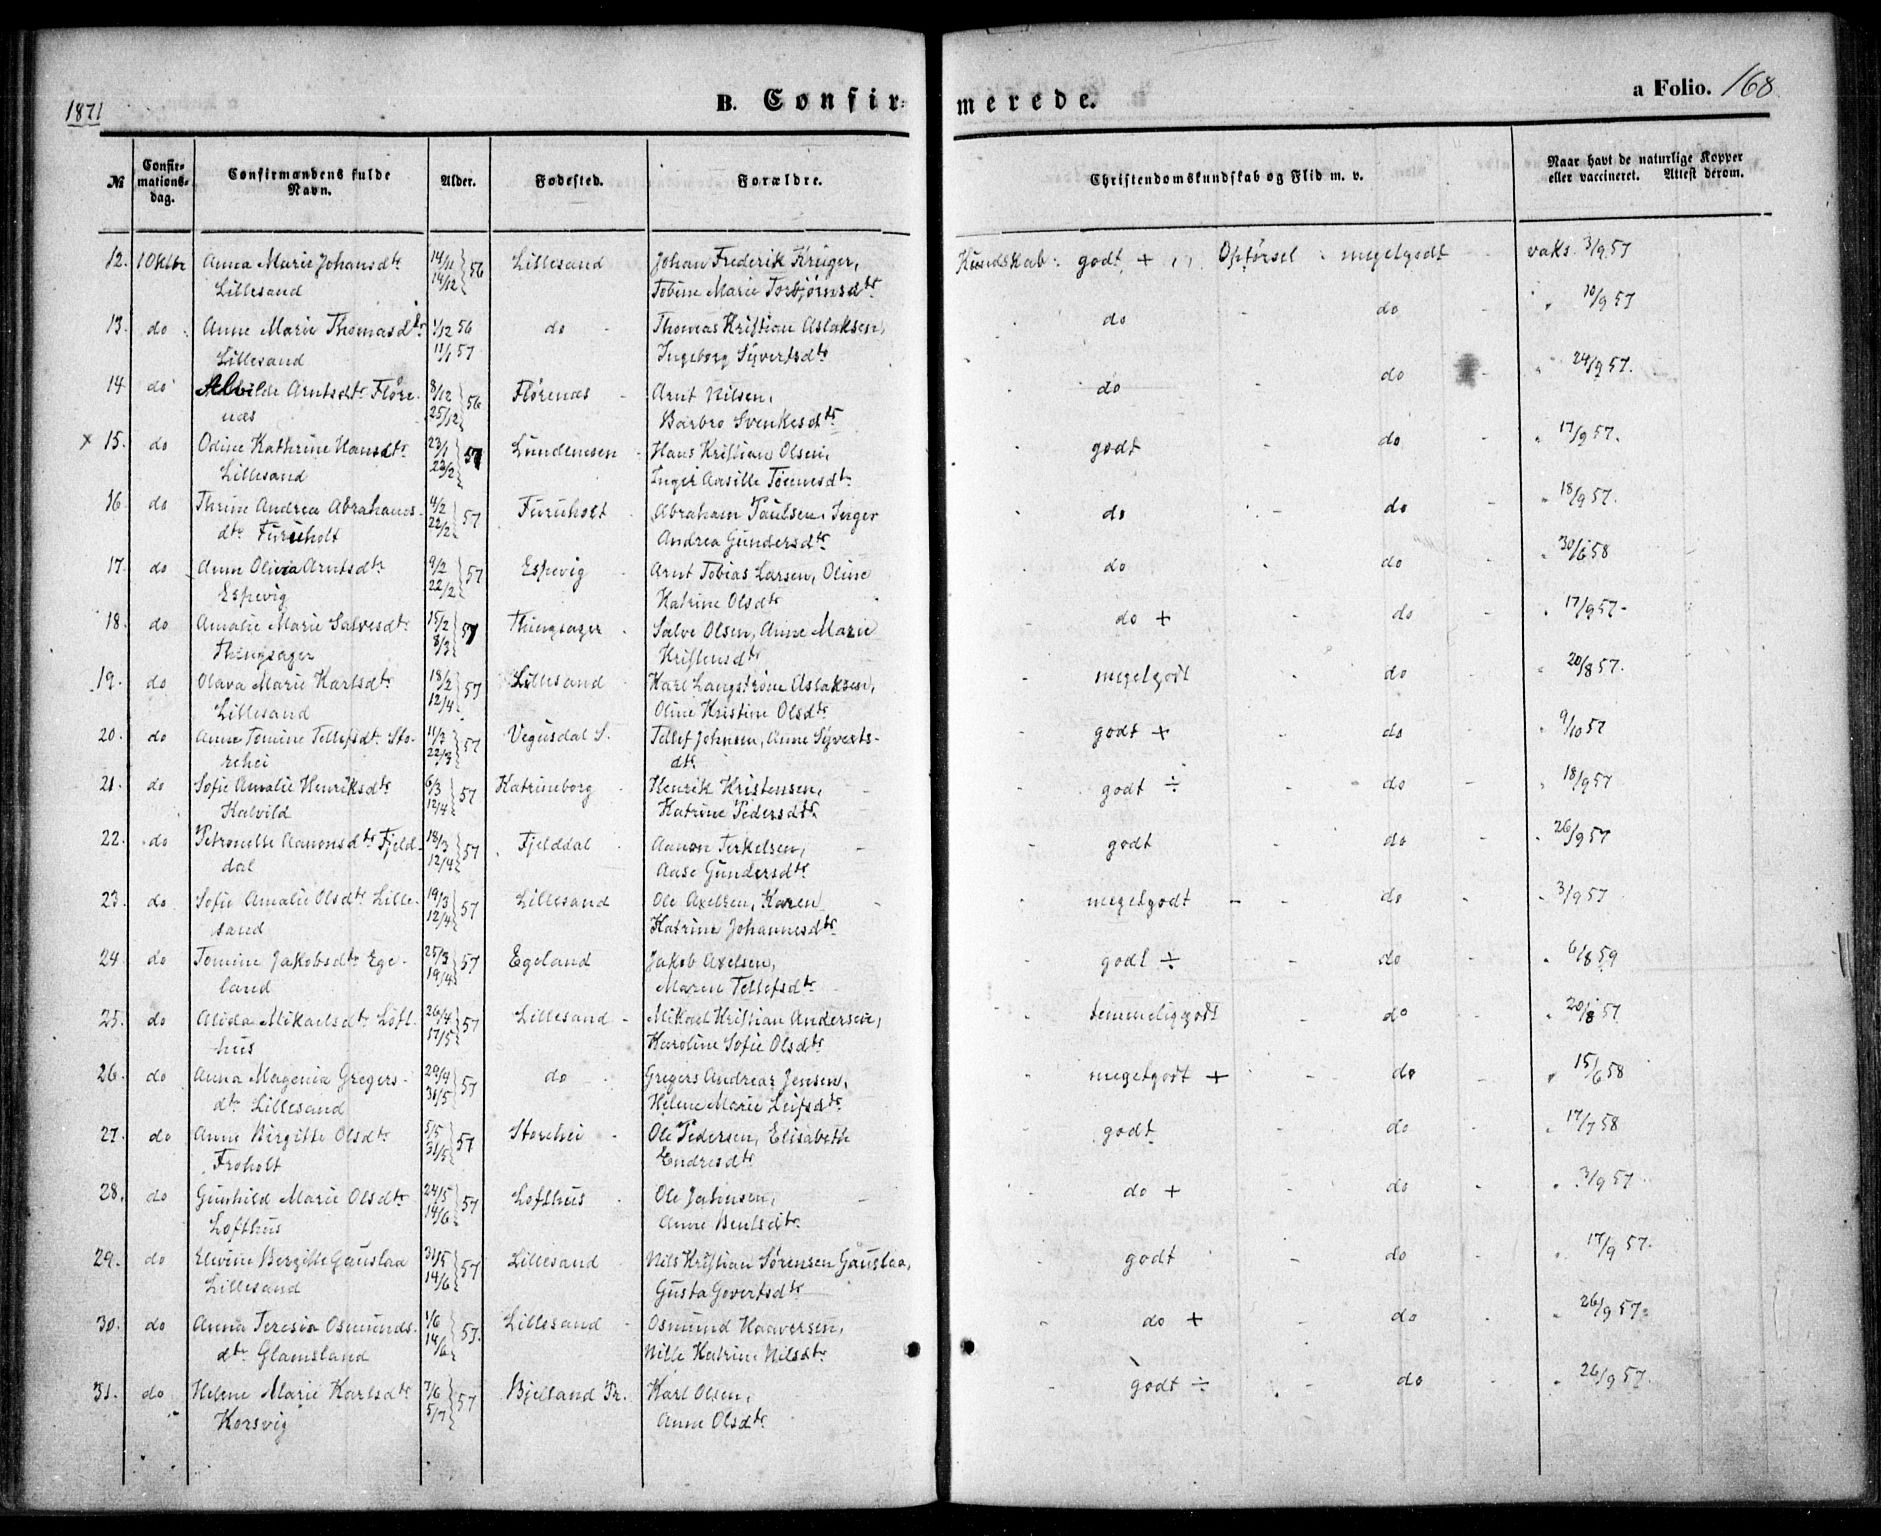 1871
B. Confir=
merede.
a Folio. 168
№
Confir=
mations=
dag.
Confirmandens fulde
Navn.
Alder.
Fødested.
Forældre.
Christendomskundskab og Flid m. v.
Naar havt de naturlige Kopper
eller vaccineret. Attest derom.
12. 1 Oktbr Anna Marie Johansdtr 14/11 56 Lillesand Johan Frederik Krüger, Kundskab: godt + Opførsel meget godt vaks. 3/9 57
Lillesand 14/12 Tobine Marie Torbjørnsdtr
13. do Anne Marie Thomasdtr 1/12 56 do Thomas Kristian Aslaksen, do do " 10/9 57
Lillesand 11/1 57 Ingeborg Syvertsdtr
14 do Alvilde Arntsdtr Fløre- 8/12 56 Flørenæs Arnt Nilsen, do do " 24/9 57.
næs 25/12 Barbro Svenkesdtr
x 15. do Odine Kathrine Hansdtr 23/1 57 Hans Kristian Olsen, godt do " 17/9 57.
Lillesand 22/2 Inger Tønnesdtr
16 do Thrine Andrea Abrahams- 4/2 57 Furuholt Abraham Paulsen, Inger do do " 18/9 57.
dtr Furuholt 22/2 Andrea Gundersdtr
17. do Anne Olivia Arntsdtr 9/2 57 Espevig Arnt Tobias Larsen, Oline do do " 30/6 58
Espevig 22/2 Katrine Olsdtr
18. do Amalie Marie Salvesdtr 15/2 57 Thingsager Salve Olsen, Anne Marie do + do " 17/9 57
Thingsager 8/3 Kristensdtr
19. do Olava Marie Karlsdtr 18/2 57 Lillesand Karl Langstrøm Aslaksen, meget godt do " 20/8 57.
Lillesand 12/4 Oline Kristine Olsdtr
20. do Anne Tomine Tellefsdtr Sto- 11/3 57 Vegusdal S. Tellef Johnsen, Anne Syverts- godt + do 9/10 57
rehei 22/3 dtr
21. do Sofie Amalie Henriksdtr 6/3 57 Katrineborg Henrik Kristensen, godt ÷ do " 18/9 57
Kalvild 12/4 Katrine Pedersdtr.
22. do Petronelle Aanonsdtr Fjeld- 18/3 57 Fjelddal Aanon Terkelsen, godt do " 26/9 57
dal 12/4 Aase Gundersdtr
23. do Sofie Amalie Olsdtr Lille- 19/3 57 Lillesand Ole Axelsen, Karen meget godt do 3/9 57
sand 12/4 Katrine Johannesdtr
24. do Tomine Jakobsdtr Ege- 25/3 57 Egeland Jakob Axelsen, godt ÷ do " 6/8 59
land 19/4 Maren Tellefsdtr
25. do Alida Mikaelsdtr Loft- 26/4 57 Lillesand Mikael Kristian Andersen, temmelig godt do " 20/8 57
hus 17/5 Karoline Sofie Olsdtr
26. do Anna Magenia Gregers- 29/4 57 do Gregers Andreas Jensen, meget godt + do " 15/6 58
dtr Lillesand 31/5 Helene Marie Leifsdtr.
27. do Anne Birgitte Olsdtr 5/5 57 Storehei Ole Pedersen, Elisabeth godt do " 17/7 58
Froholt 31/5 Endresdtr
28. do Gunhild Marie Olsdtr 24/5 57 Lofthus Ole Jahnsen, do + do " 3/9 57
Lofthus 14/6 Anne Bentsdtr.
29. do Elevine Bergitte Gauslaa 31/5 57 Lillesand Nils Kristian Sørensen Gauslaa, godt do " 17/9 57.
Lillesand 14/6 Gusta Govertsdtr
30. do Anna Teresia Osmunds- 1/6 57 Lillesand Osmund Haaversen, do + do " 26/9 57
dtr Glamsland 14/6 Nille Katrine Nilsdtr.
31. do Helene Marie Karlsdtr 7/6 57 Bjelland Tr. Karl Olsen, godt ÷ do " 26/9 57.
Korsvig 5/7 Anne Olsdtr